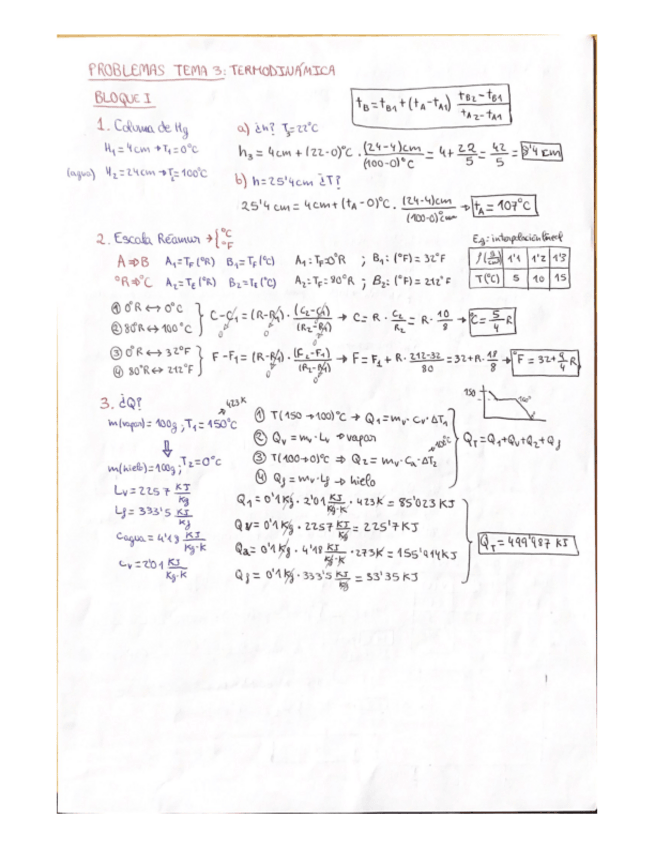 PROBLEMAS TEMA 3: TERMODINÁMICA
BLOQUE I
t_B = t_B1 + (t_A - t_A1) (t_B2 - t_B1)/(t_A2 - t_A1)
1. Columna de Hg
H₁ = 4cm → T₁ = 0°C
(agua) H₂ = 24cm → T₂ = 100°C
a) ¿h? T₃ = 22°C
h₃ = 4cm + (22-0)°C · (24-4)cm/(100-0)°C = 4 + 22/5 = 42/5 = 8'4 cm
b) h = 25'4cm ¿T?
25'4 cm = 4cm + (t_A - 0°C) · (24-4)cm/(100-0)°C → t_A = 107°C
2. Escala Réamur → {°C °F
A ⇒ B A₁ = T_F (°R) B₁ = T_F (°C) A₁: T_F = 0°R ; B₁: (°F) = 32°F
°R ⇒ °C A₂ = T_E (°R) B₂ = T_E (°C) A₂: T_F = 80°R ; B₂: (°F) = 212°F
E.g: interpolación lineal
1'1 1'2 1'3
T(°C) 5 10 15
① 0°R ↔ 0°C
② 80°R ↔ 100°C
C - C₁ = (R - R₁) · (C₂ - C₁)/(R₂ - R₁) → C = R · C₂/R₂ = R · 10/8 → °C = 5/4 R
③ 0°R ↔ 32°F
④ 80°R ↔ 212°F
F - F₁ = (R - R₁) · (F₂ - F₁)/(R₂ - R₁) → F = F₁ + R · 212-32/80 = 32 + R · 18/8 → °F = 32 + 9/4 R
3. ¿Q?
423K
m(vapor) = 100g ; T₁ = 150°C
⇓
m(hielo) = 100g ; T₂ = 0°C
L_V = 2257 KJ/Kg
L_f = 333'5 KJ/Kg
C_agua = 4'18 KJ/Kg·K
C_V = 2'01 KJ/Kg·K
① T(150→100)°C ⇒ Q₁ = m_v · C_v · ΔT₁
② Q_v = m_v · L_v → vapor
100°C
③ T(100→0)°C ⇒ Q₂ = m_v · C_a · ΔT₂
④ Q_f = m_v · L_f → hielo
150
Q_T = Q₁ + Q_V + Q₂ + Q_f
Q₁ = 0'1 Kg · 2'01 KJ/Kg·K · 423K = 85'023 KJ
Q_V = 0'1 Kg · 2257 KJ/Kg = 225'7 KJ
Q_a = 0'1 Kg · 4'18 KJ/Kg·K · 273K = 155'414 KJ
Q_f = 0'1 Kg · 333'5 KJ/Kg = 33'35 KJ
Q_T = 499'487 KJ